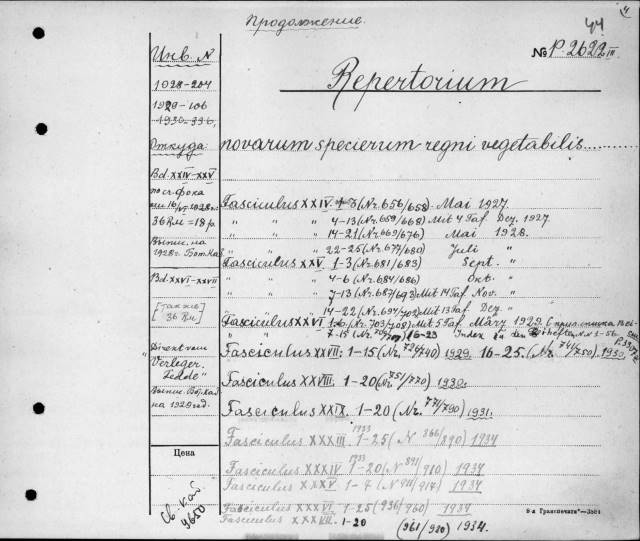 Продолжение.
44
№ P-2622 III
Инв. №
Repertorium
1028-204
1929-106
1930-336
Откуда:
novarum specierum regni vegetabilis
Bd. XXIV-XXV
Fasciculus XXIV 1-3 (Nr. 656/658) Mai 1927.
" " " 4-13 (Nr. 659/668) Mit 4 Taf. Dez. 1927.
36 RM = 18 р.
" " " 14-21 (Nr. 669/676) Mai 1928.
" " " 22-25 (Nr. 677/680) Juli "
1928г. Бот. Каб.
Fasciculus XXV 1-3 (Nr. 681/683) Sept. "
Bd. XXVI-XXVII
" " " 4-6 (Nr. 684/686) Okt. "
" " " 7-13 (Nr. 687/693) Mit 14 Taf. Nov. "
[также]
36 RM
" " " 14-22 (Nr. 694/702) Mit 13 Taf. Dez. "
Fasciculus XXVI 1-6 (Nr. 703/708) Mit 5 Taf. März 1929
" " 7-15 16-25 Index zu den Beiheften N.N 1-56
Direkt vom
Verleger.
Fedde"
Fasciculus XXVII: 1-15 (Nr. 726/740) 1929. 16-25. (Nr. 741/750). 1930.
Fasciculus XXVIII. 1-20 (Nr. 751/770) 1930.
на 1929 год.
Fasciculus XXIX. 1-20 (Nr. 771/790) 1931.
Fasciculus XXXIII 1933 1-25 (N 866/890) 1934
Цена
Fasciculus XXXIV 1933 1-20 (N 891/910) 1934
Fasciculus XXXV 1-4 (N 911/914) 1934
Св. каб.
9650
Fasciculus XXXVI 1-25 (936/960) 1934
Fasciculus XXXVII. 1-20 (961/980) 1934.
9-я Транспечать"—3584